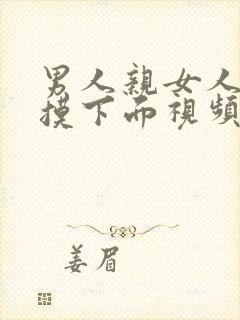 男人親女人
摸下而視頻
姜眉